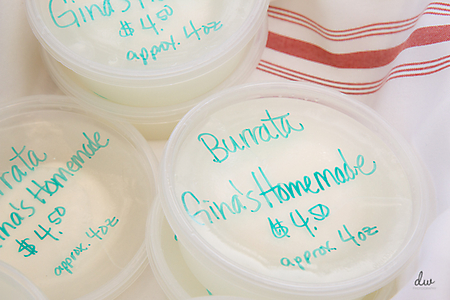 Gina's Homemade
$4.50
approx. 4oz
rrata
na's Homemade
$4.50
approx. 4oz
Burrata
Gina's Homemade
$4.50
approx. 4oz
dw